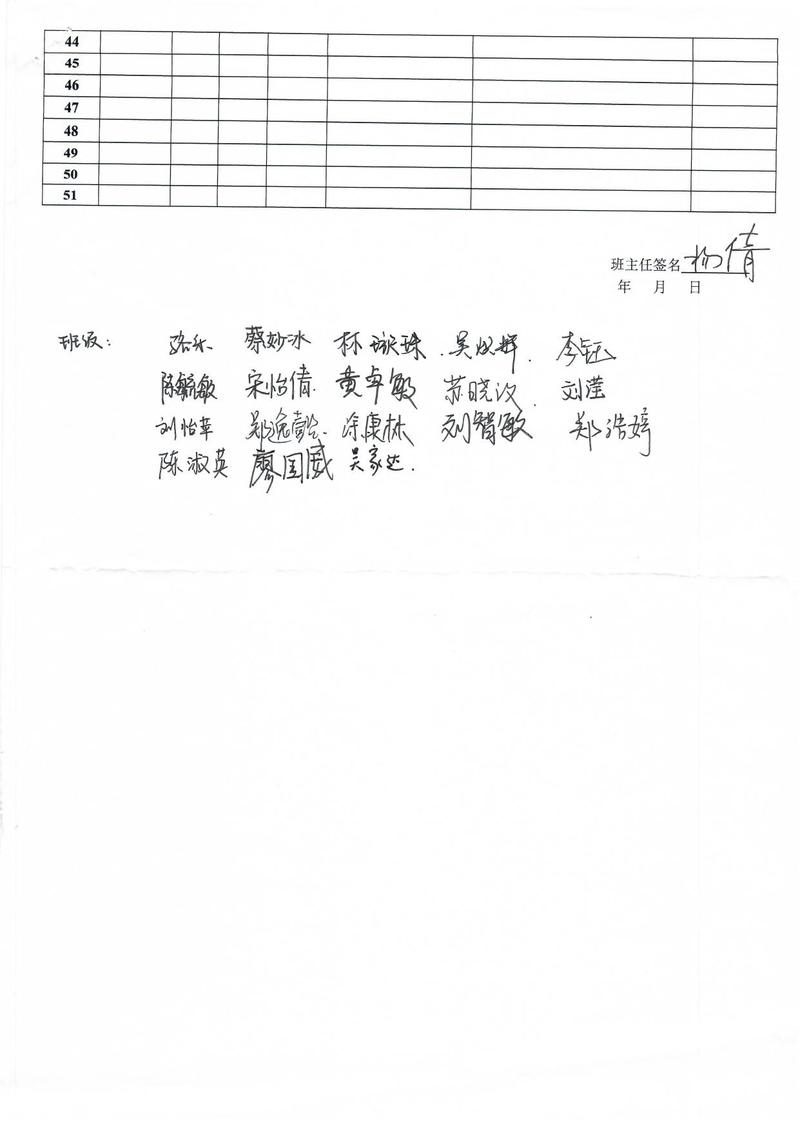 44
45
46
47
48
49
50
51
班主任签名 杨倩
年 月 日
班级: 蔡妙冰 林璇珠. 吴 辉. 李钰
陈毓敏 宋怡倩. 黄卓敏 苏晓汶. 刘滢
刘怡苹 郑逸 涂康林 刘智敏 郑浩婷
陈淑英 廖国威 吴家达.